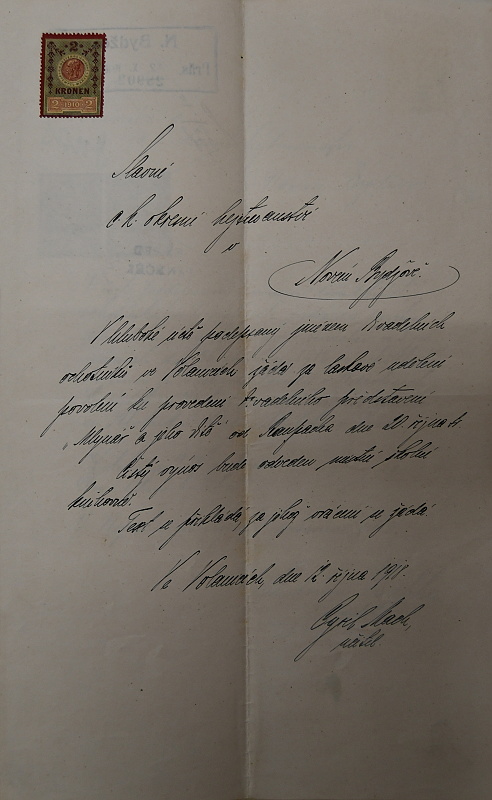 2
KRONEN
2 1910 2
Slavné
c. k. okresní hejtmanství
v
Novém Bydžově.
V hluboké úctě podepsaný jménem divadelních
ochotníků ve Volanicích žádá za laskavé udělení
povolení ku provedení divadelního představení
„Mlynář a jeho dítě" od Raupacha dne 20. října t. r.
Čistý výnos bude odveden místní školní
knihovně.
Text se překládá, za jehož vrácení se žádá.
Ve Volanicích, dne 12. října 1918.
Cyril Mach,
učitel.